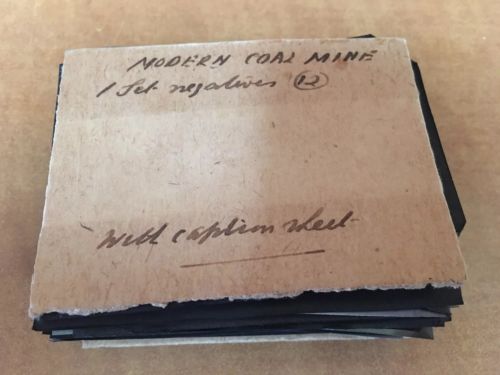 MODERN COAL MINE
1 Set negatives 12
With caption sheet